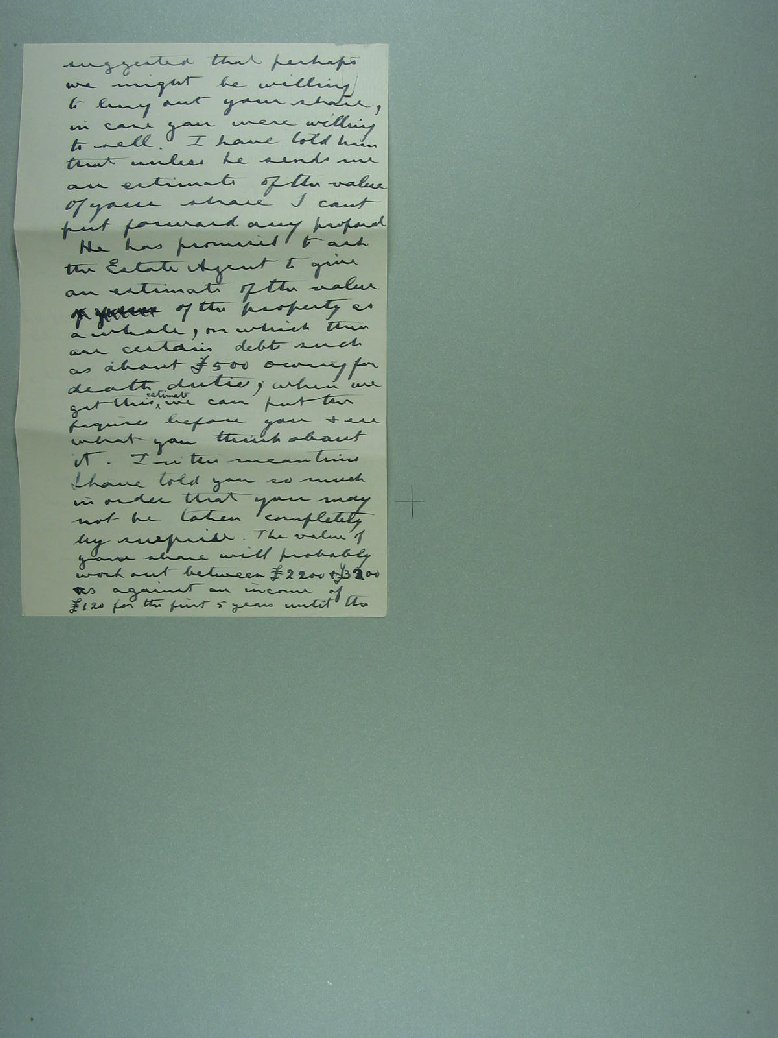 suggested that perhaps
we might be willing
to buy out your share,
in case you were willing
to sell. I have told him
that unless he sends me
an estimate of the value
of your share I cant
put forward any proposal
He has promised to ask
the Estate Agent to give
an estimate of the value
of the property as
a whole, on which there
are certain debts such
as about £500 owing for
death duties, when we
get this estimate we can put the
figures before you & see
what you think about
it. In the meantime
I have told you so much
in order that you may
not be taken completely
by surprise. The value of
your share will probably
work out between £2200 &
as against an income of
£120 for the first 5 years until the